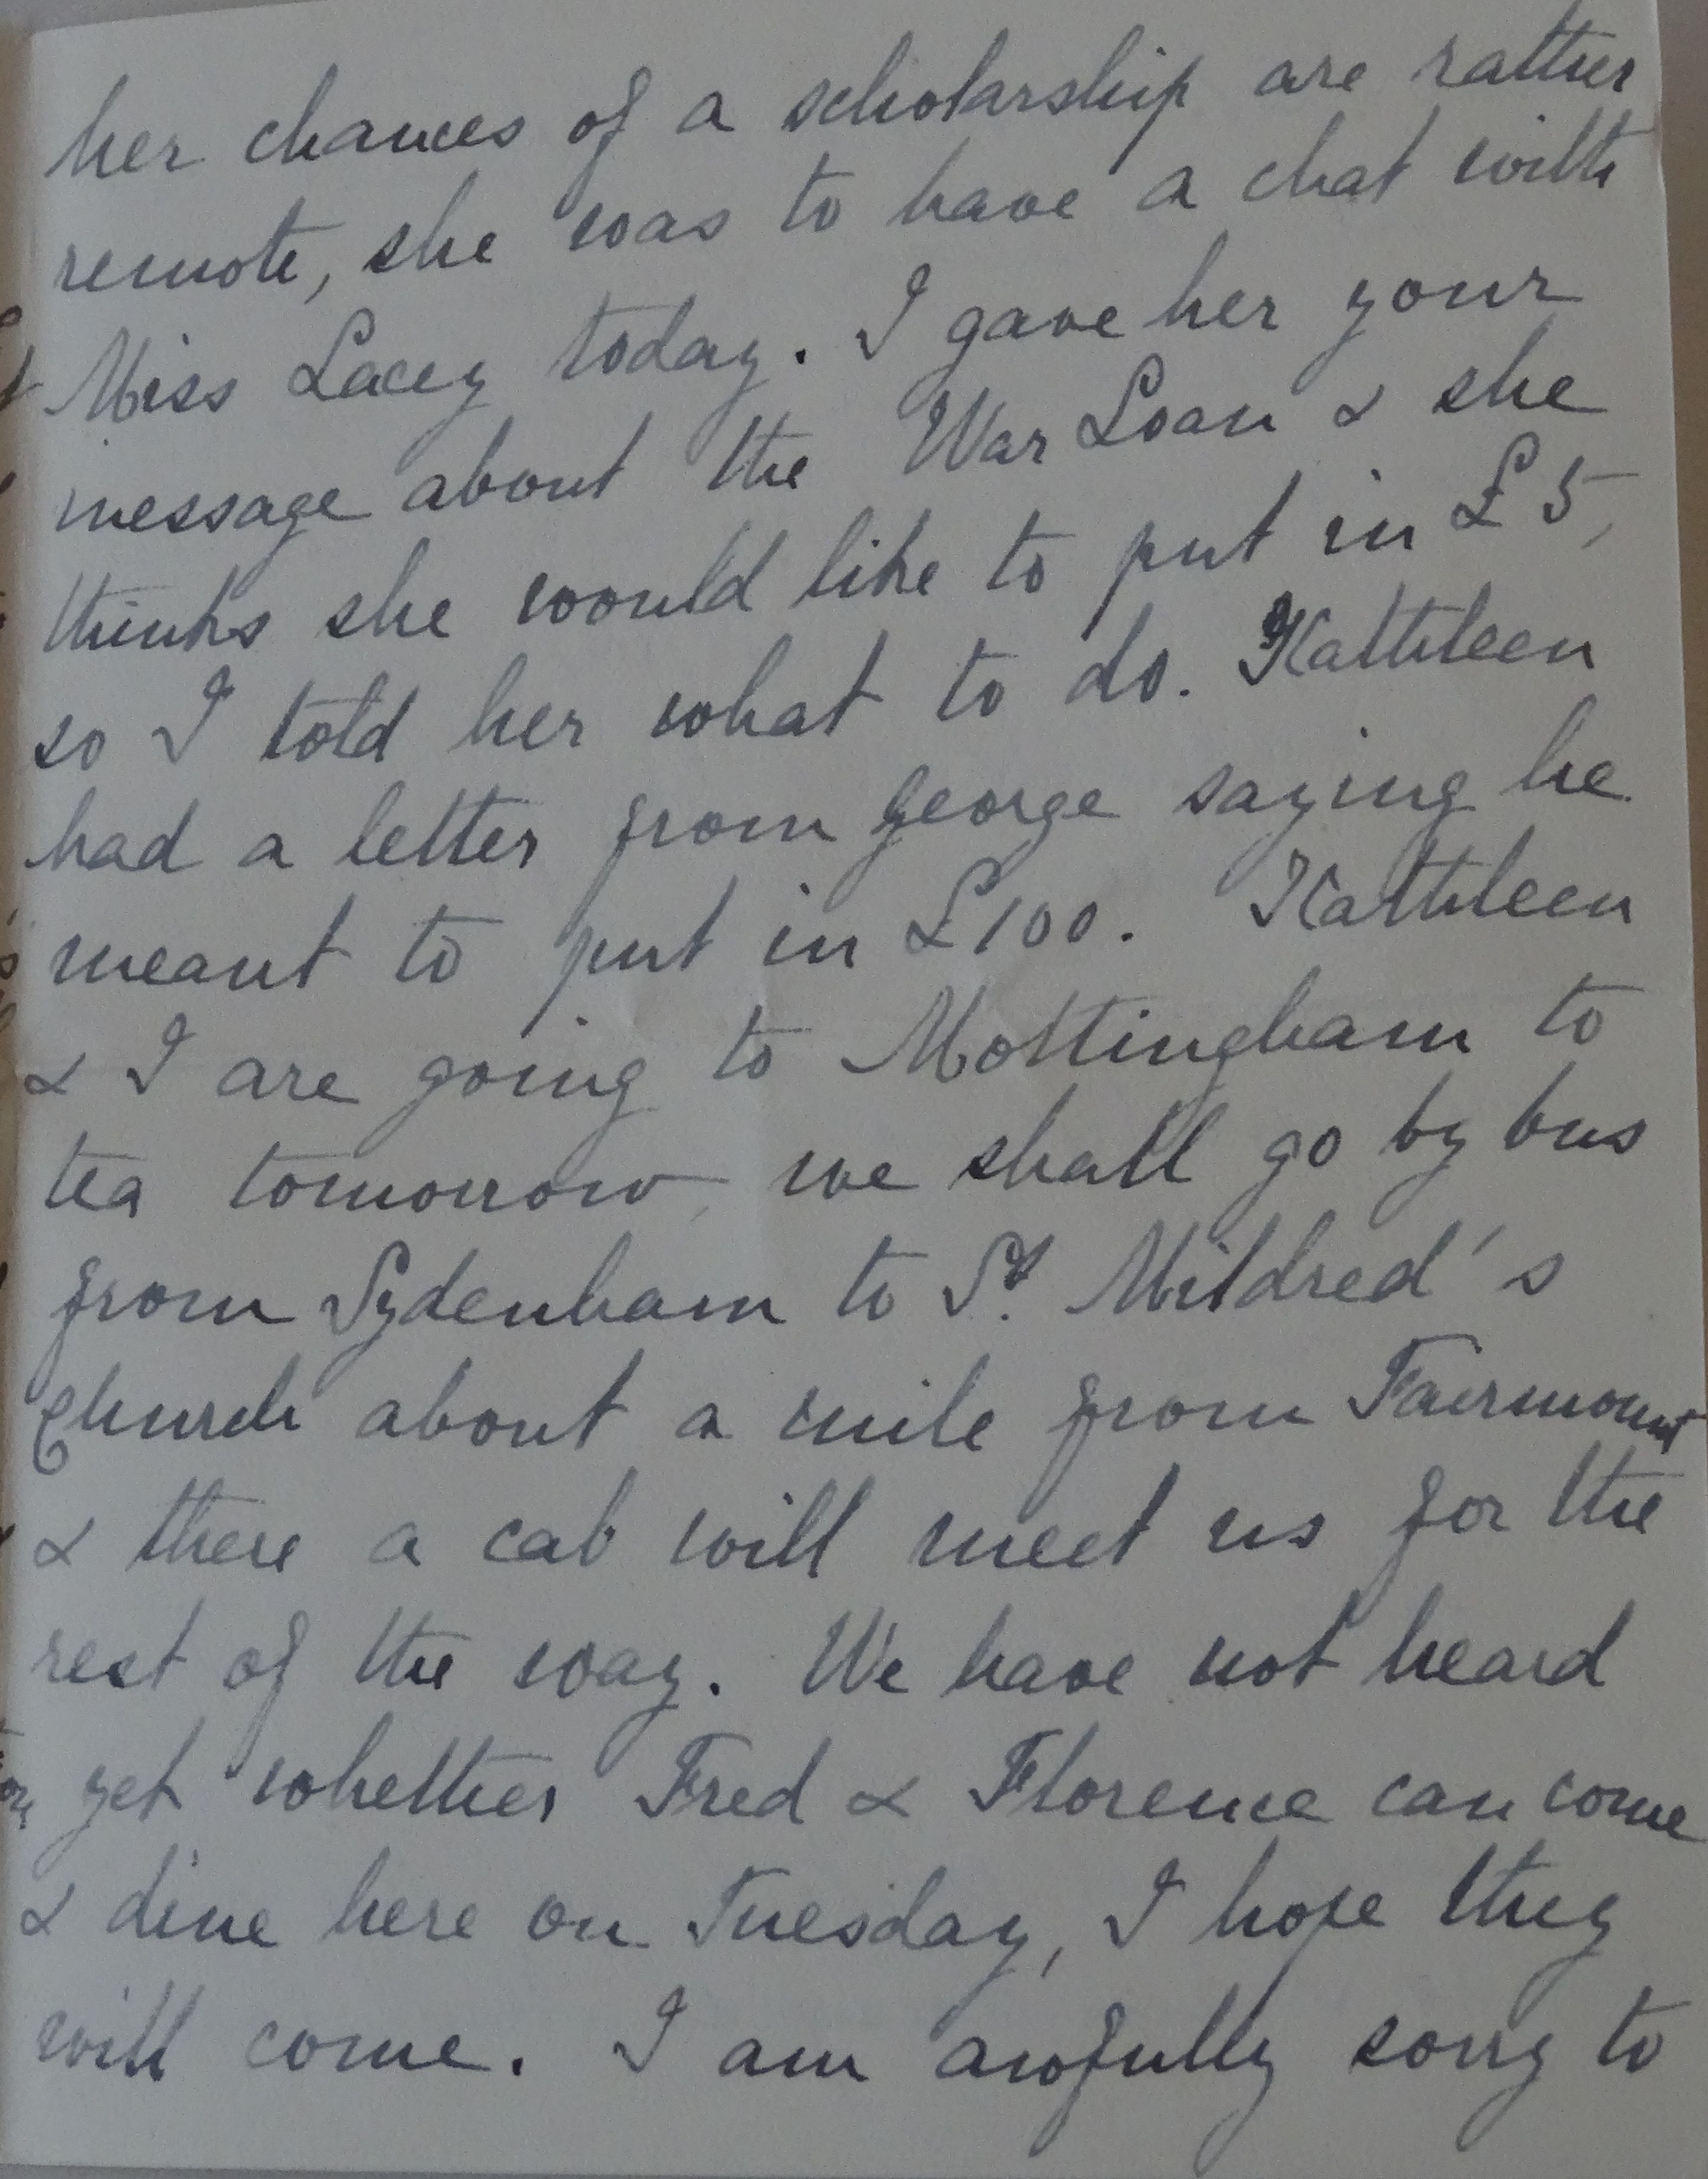 her chances of a scholarship are rather
remote, she was to have a chat with
Miss Lacey today. I gave her your
message about the War Loan & she
thinks she would like to put in £5,
so I told her what to do. Kathleen
had a letter from George saying he
meant to put in £100. Kathleen
& I are going to Mottingham to
tea tomorrow, we shall go by bus
from Sydenham to St. Mildred's
Church about a mile from Fairmount
& there a cab will meet us for the
rest of the way. We have not heard
yet whether Fred & Florence can come
& dine here on Tuesday, I hope they
will come. I am awfully sorry to